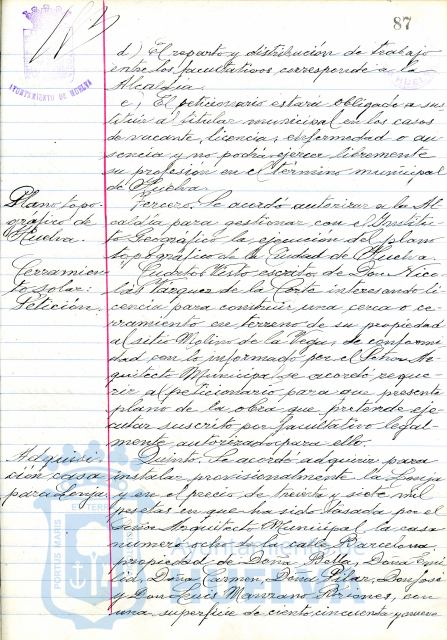 87
AYUNTAMIENTO DE HUELVA
d) El reparto y distribución de trabajo
entre los facultativos corresponde a la
Alcaldía.
e) El peticionario estará obligado a sus
tituir al titular municipal en los casos
de vacante, licencia, enfermedad o au
sencia y no podrá ejercer libremente
su profesión en el término municipal
de Huelva.
Plano topo-
gráfico de
Huelva.
Tercero. Se acordó autorizar a la Al
caldía para gestionar con el Institu
to Geográfico la ejecución del plano
topográfico de la Ciudad de Huelva.
Cerramien
to solar:
Petición.
Cuarto. Visto escrito de Don Nico
lás Vázquez de la Corte interesando li
cencia para construir una cerca o ce
rramiento en terreno de su propiedad
al sitio Molino de la Vega, de conformi
dad con lo informado por el Señor Ar
quitecto Municipal se acordó reque
rir al peticionario para que presente
plano de la obra que pretende eje
cutar suscrito por facultativo legal-
mente autorizado para ello.
Adquisi-
ción casa
para Lonja
Quinto. Se acordó adquirir para
instalar provisionalmente la Lonja
y en el precio de treinta y siete mil
pesetas en que ha sido tasada por el
Señor Arquitecto Municipal la casa
número ocho de la calle Barcelona
propiedad de Doña Bella, Doña Emi
lia, Doña Carmen, Doña Pilar, Don José
y Don Luis Manzano Briones, con
una superficie de ciento cincuenta y nueve
PORTUS MARIS
TERR
Ayuntamiento de
HUELVA